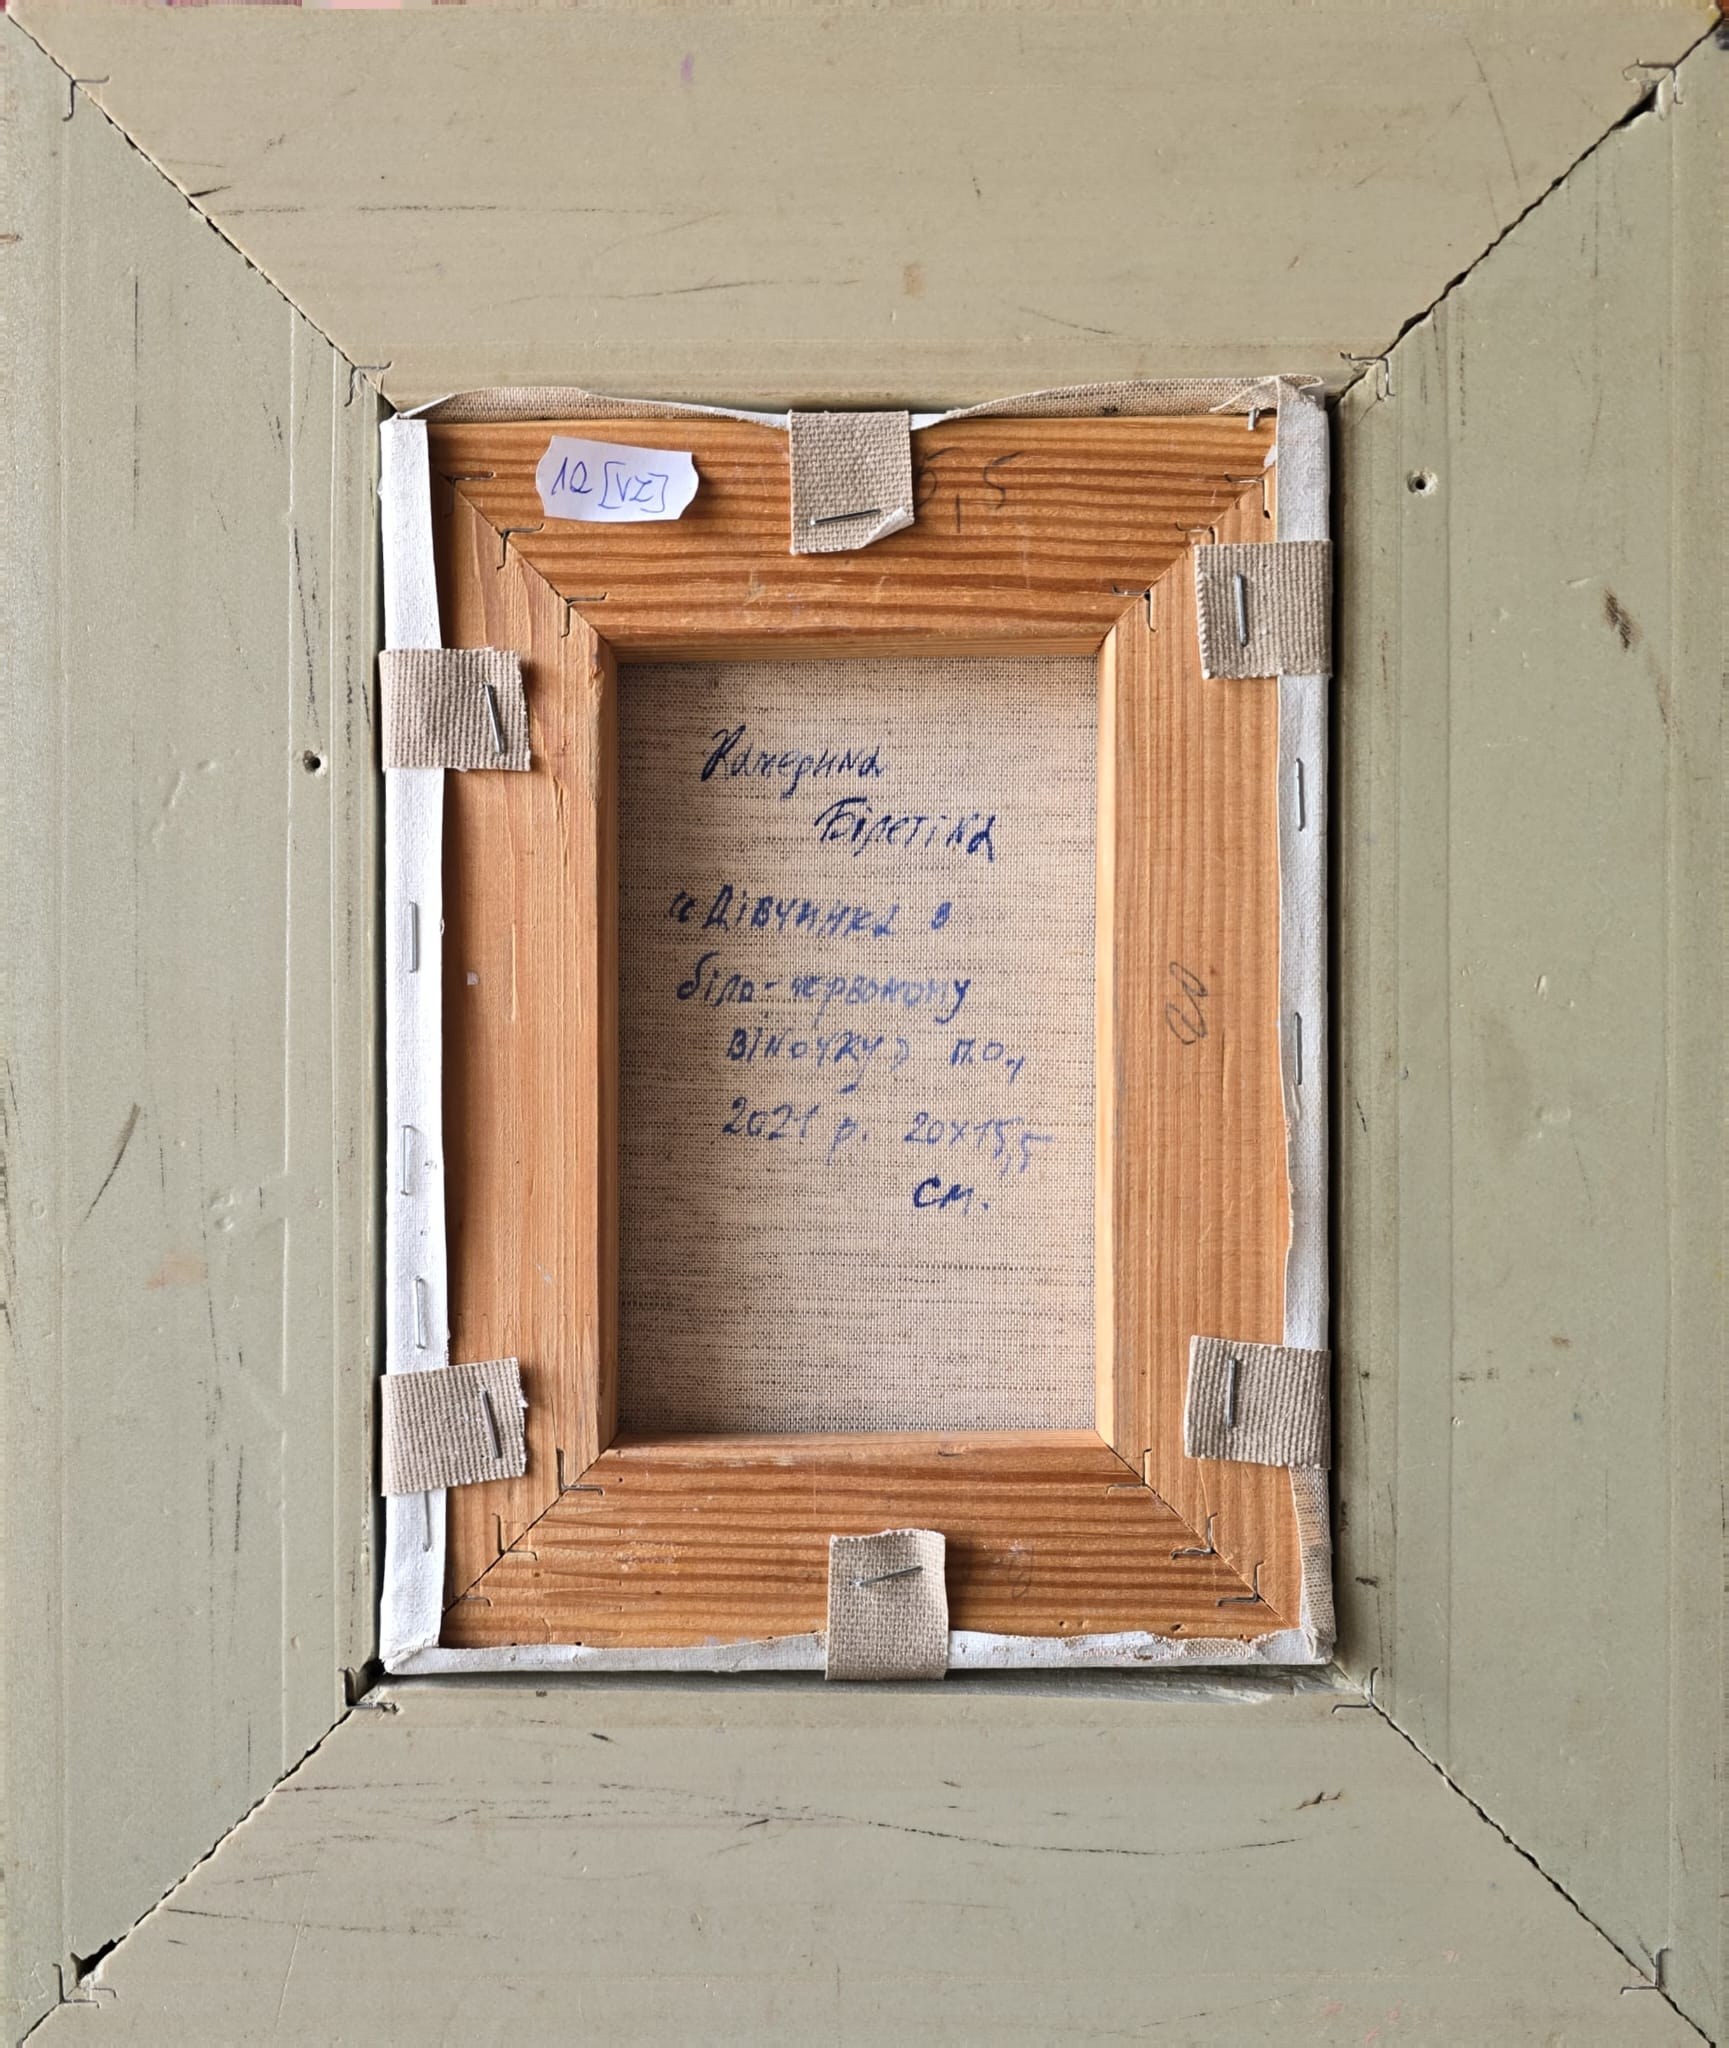 12 [VZ]
5,5
Катерина
Білетіна
«Дівчинка в
біло-червоному
віночку» п.о.,
2021 р. 20х15,5
см.